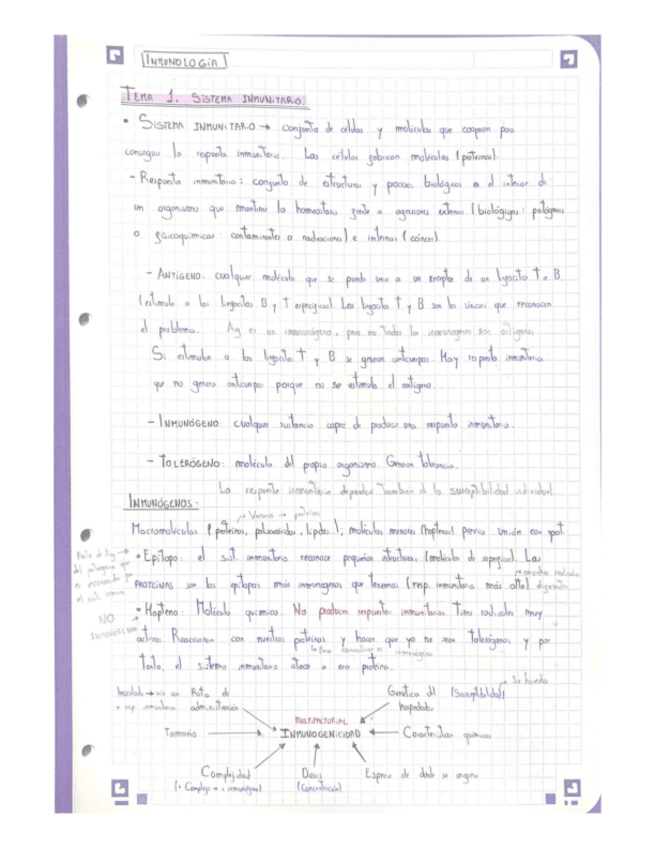 INMUNOLOGÍA
TEMA 1. SISTEMA INMUNITARIO.
• SISTEMA INMUNITARIO → conjunto de células y moléculas que cooperan para
conseguir la respuesta inmunitaria. Las células fabrican moléculas (proteínas).
- Respuesta inmunitaria: conjunto de estructuras y procesos biológicos en el interior de
un organismo que mantiene la homeostasis frente a agresiones externas (biológicas: patógenos
o fisicoquímicas: contaminantes o radiaciones) e internas (cáncer).
- ANTÍGENO: cualquier molécula que se puede unir a un receptor de un linfocito T o B.
(estimula a los linfocitos B y T específicos). Los linfocitos T y B son los únicos que reconocen
el problema. Ag es un inmunógeno, pero no todos los inmunógenos son antígenos.
Si estimulan a los linfocitos T y B se generan anticuerpos. Hay respuesta inmunitaria
que no genera anticuerpos porque no se estimula el antígeno.
- INMUNÓGENO: cualquier sustancia capaz de producir una respuesta inmunitaria.
- TOLERÓGENO: molécula del propio organismo. Generan tolerancia.
La respuesta inmunitaria dependerá también de la susceptibilidad individual.
INMUNÓGENOS:
↳ Vacunas → proteínas
Macromoléculas (proteínas, polisacáridos, lípidos); moléculas menores (haptenos) previa unión con prot
• Epítopo: el sist. inmunitario reconoce pequeñas estructuras (moléculas de superficie). Las
PROTEÍNAS son los epítopos más inmunógenos que tenemos (resp. inmunitaria más alta)
• Hapteno: Molécula química. No producen respuestas inmunitarias. Tiene radicales muy
NO
INMUNÓGENO
activos. Reaccionan con nuestras proteínas y hacen que ya no sean tolerógenas y por
tanto, el sistema inmunitario ataca a esa proteína.
Ruta de
administración
Genética del (Susceptibilidad)
hospedador
Se hereda
MULTIFACTORIAL
Tamaño
INMUNOGENICIDAD
Características químicas
Complejidad
(+ Complejo → + inmunógeno)
Dosis
(Concentración)
Especie de donde se origina